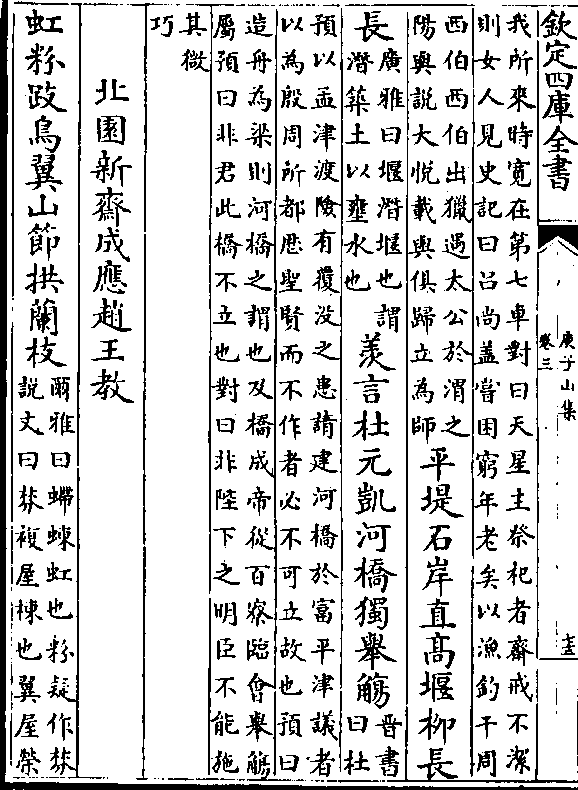 欽定四庫全書
庾子山集
卷三
十五
我所來時寛在第七車對曰天星主祭祀者齋戒不潔
則女人見史記曰吕尚蓋嘗困窮年老矣以漁釣干周
西伯西伯出獵遇太公於渭之
陽與說大悅載與俱歸立為師
平堤石岸直高堰栁長
長
廣雅曰堰潛堰也謂
潛築土以壅水也
羨言杜元凱河橋獨舉觴
晉書
曰杜
預以孟津渡險有覆没之患請建河橋於富平津議者
以為殷周所都歴聖賢而不作者必不可立故也預曰
造舟為梁則河橋之謂也及橋成帝從百寮臨會舉觴
屬預曰非君此橋不立也對曰非陛下之明臣不能施
其微
巧
北園新齋成應趙王教
虹粉跂鳥翼山節拱蘭枝
爾雅曰螮蝀虹也粉疑作棼
説文曰棼複屋棟也翼屋榮